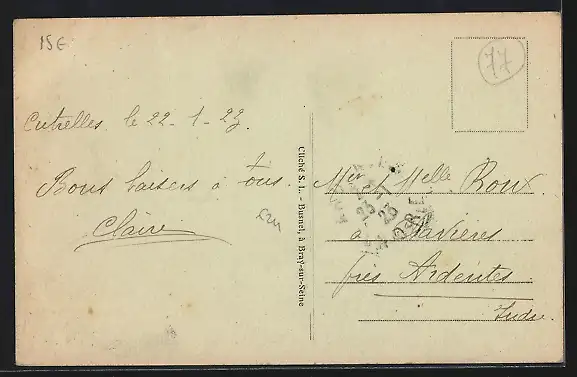 15€
77
Cutrelles le 22-1-23.
Bons baisers à tous.
Claire
Cliché S. L. - Busnel, à Bray-sur-Seine
Mr et Melle Roux
à
près Ardentes
Indre.